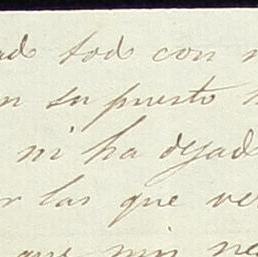 ad tod con
en su puesto
ni ha dejad
r las que ve
que min ne